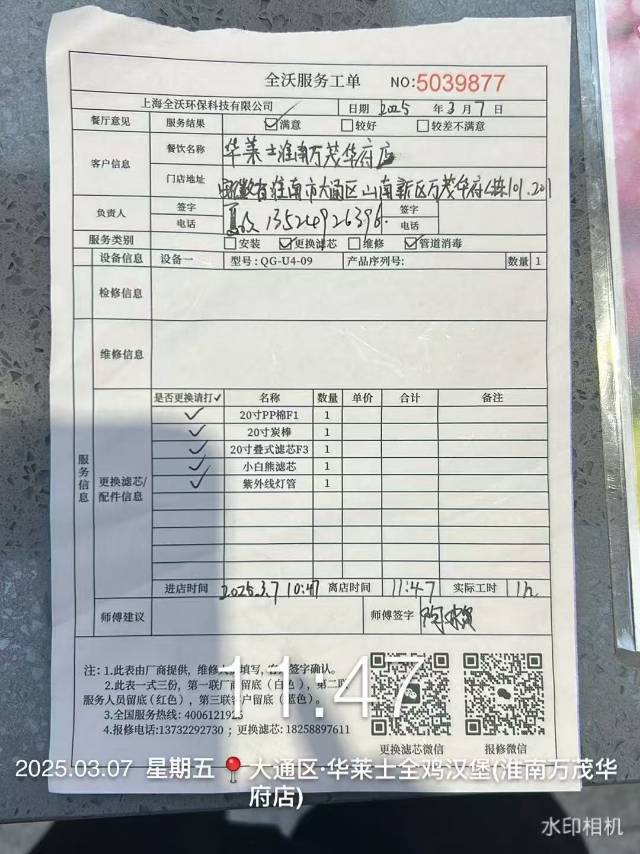 全沃服务工单 NO:5039877
上海全沃环保科技有限公司 日期 2025 年 3 月 7 日
餐厅意见 服务结果 ☑满意 □较好 □较差不满意
客户信息 餐饮名称 华莱士淮南万茂华府店
门店地址 安徽省淮南市大通区山南新区万茂华府 栋101.201
负责人 签字 签字
电话 13524926396 电话
服务类别 □安装 ☑更换滤芯 □维修 ☑管道消毒
设备信息 设备一 型号:QG-U4-09 产品序列号: 数量 1
检修信息
维修信息
服务信息
更换滤芯/配件信息
是否更换请打✓ 名称 数量 单价 合计 备注
✓ 20寸PP棉F1 1
✓ 20寸炭棒 1
✓ 20寸叠式滤芯F3 1
✓ 小白熊滤芯 1
✓ 紫外线灯管 1
进店时间 2025.3.7 10:47 离店时间 11:47 实际工时 1h
师傅建议 师傅签字
注:1.此表由厂商提供，维修人员填写，客户签字确认。
2.此表一式三份，第一联厂商留底（白色），第二联
服务人员留底（红色），第三联客户留底（蓝色）。
3.全国服务热线: 4006121925
4.报修电话:13732292730 ; 更换滤芯: 18258897611
更换滤芯微信 报修微信
11:47
2025.03.07 星期五 大通区·华莱士全鸡汉堡(淮南万茂华
府店)
水印相机